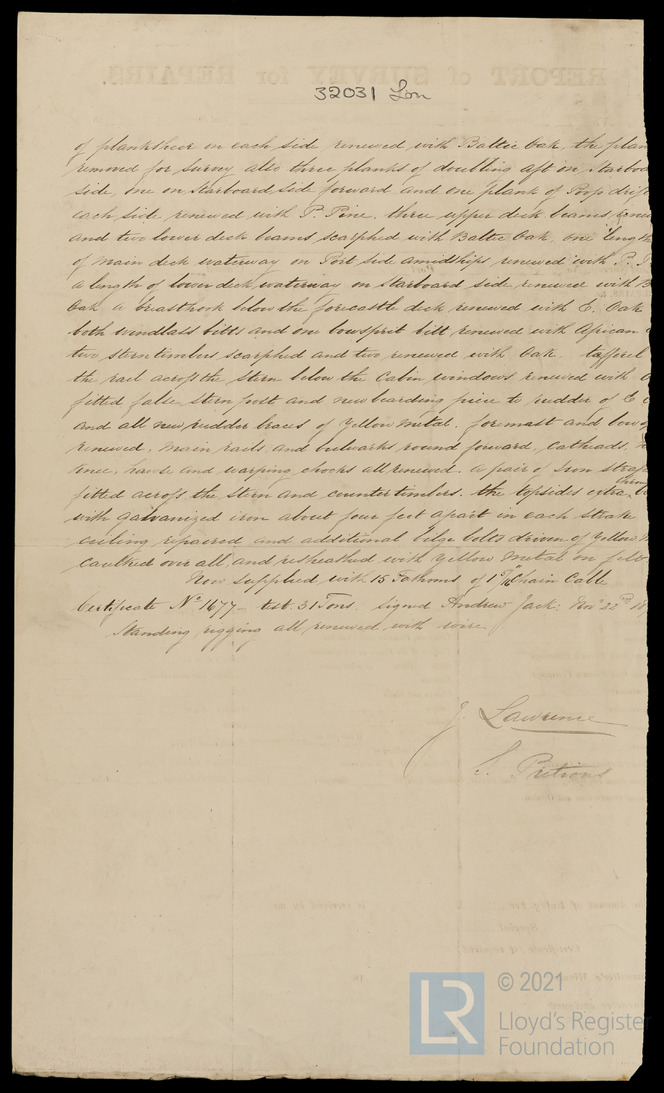 32031 Lon
of planksheer on each side renewed with Baltic Oak, the plan
removed for survey also three planks of doubling aft on Starboa
side, one on Starboard side forward and one plank of Poop drift
each side renewed with P. Pine. three upper deck beams renew
and two lower deck beams scarphed with Baltic Oak. one length
of main deck waterway on Port side amidships renewed with P. P
a length of lower deck waterway on Starboard side renewed with B
Oak a breasthook below the forecastle deck renewed with E. Oak
both windlass bitts and one bowsprit bitt renewed with African
two stern timbers scarphed and two renewed with Oak. tafferel
the rail across the Stern below the Cabin windows renewed with
fitted false stern post and new bearding piece to rudder of E
and all new rudder braces of Yellow Metal. foremast and bow
renewed. main rails and bulwarks round forward, catheads,
hawse and warping chocks all renewed. a pair of Iron Strap
fitted across the stern and counter timbers. the topsides extra
with galvanized iron about four feet apart in each strake
ceiling repaired and additional bilge bolts driven of Yellow M
caulked over all and resheathed with Yellow Metal on felt
Now supplied with 15 Fathoms of Chain Cable
Certificate No 1677 - test 31 Tons. signed Andrew Jack: Nov 22nd 18
Standing rigging all renewed with wire
J. Lawrence
S. Pretious
© 2021
LR
Lloyd's Register
Foundation